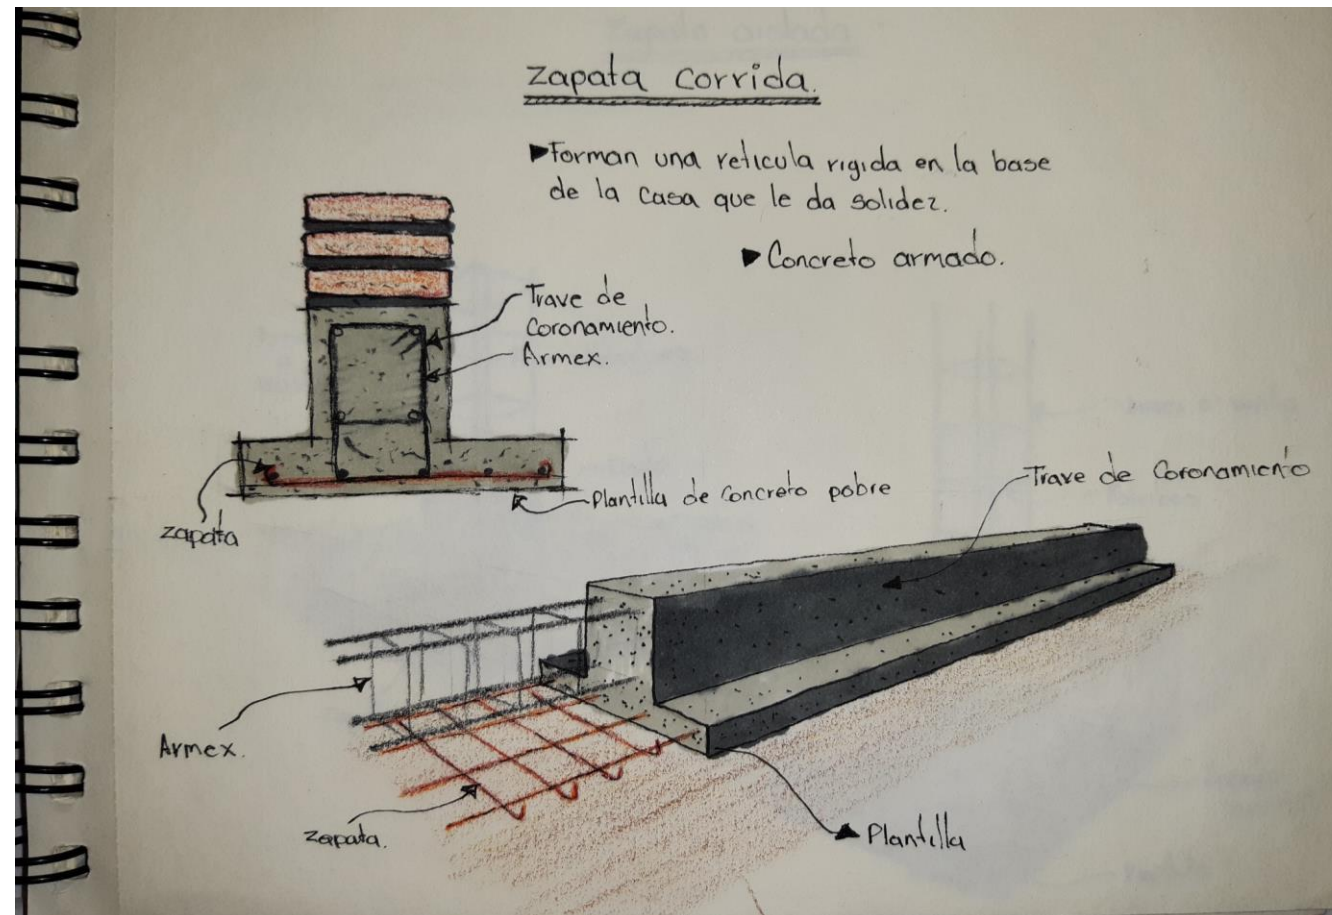 Zapata Corrida.
▶Forman una reticula rigida en la base
de la casa que le da solidez.
▶ Concreto armado.
Trave de
Coronamiento.
Armex.
Plantilla de Concreto pobre
zapata
Trave de Coronamiento
Armex.
Zapata.
Plantilla